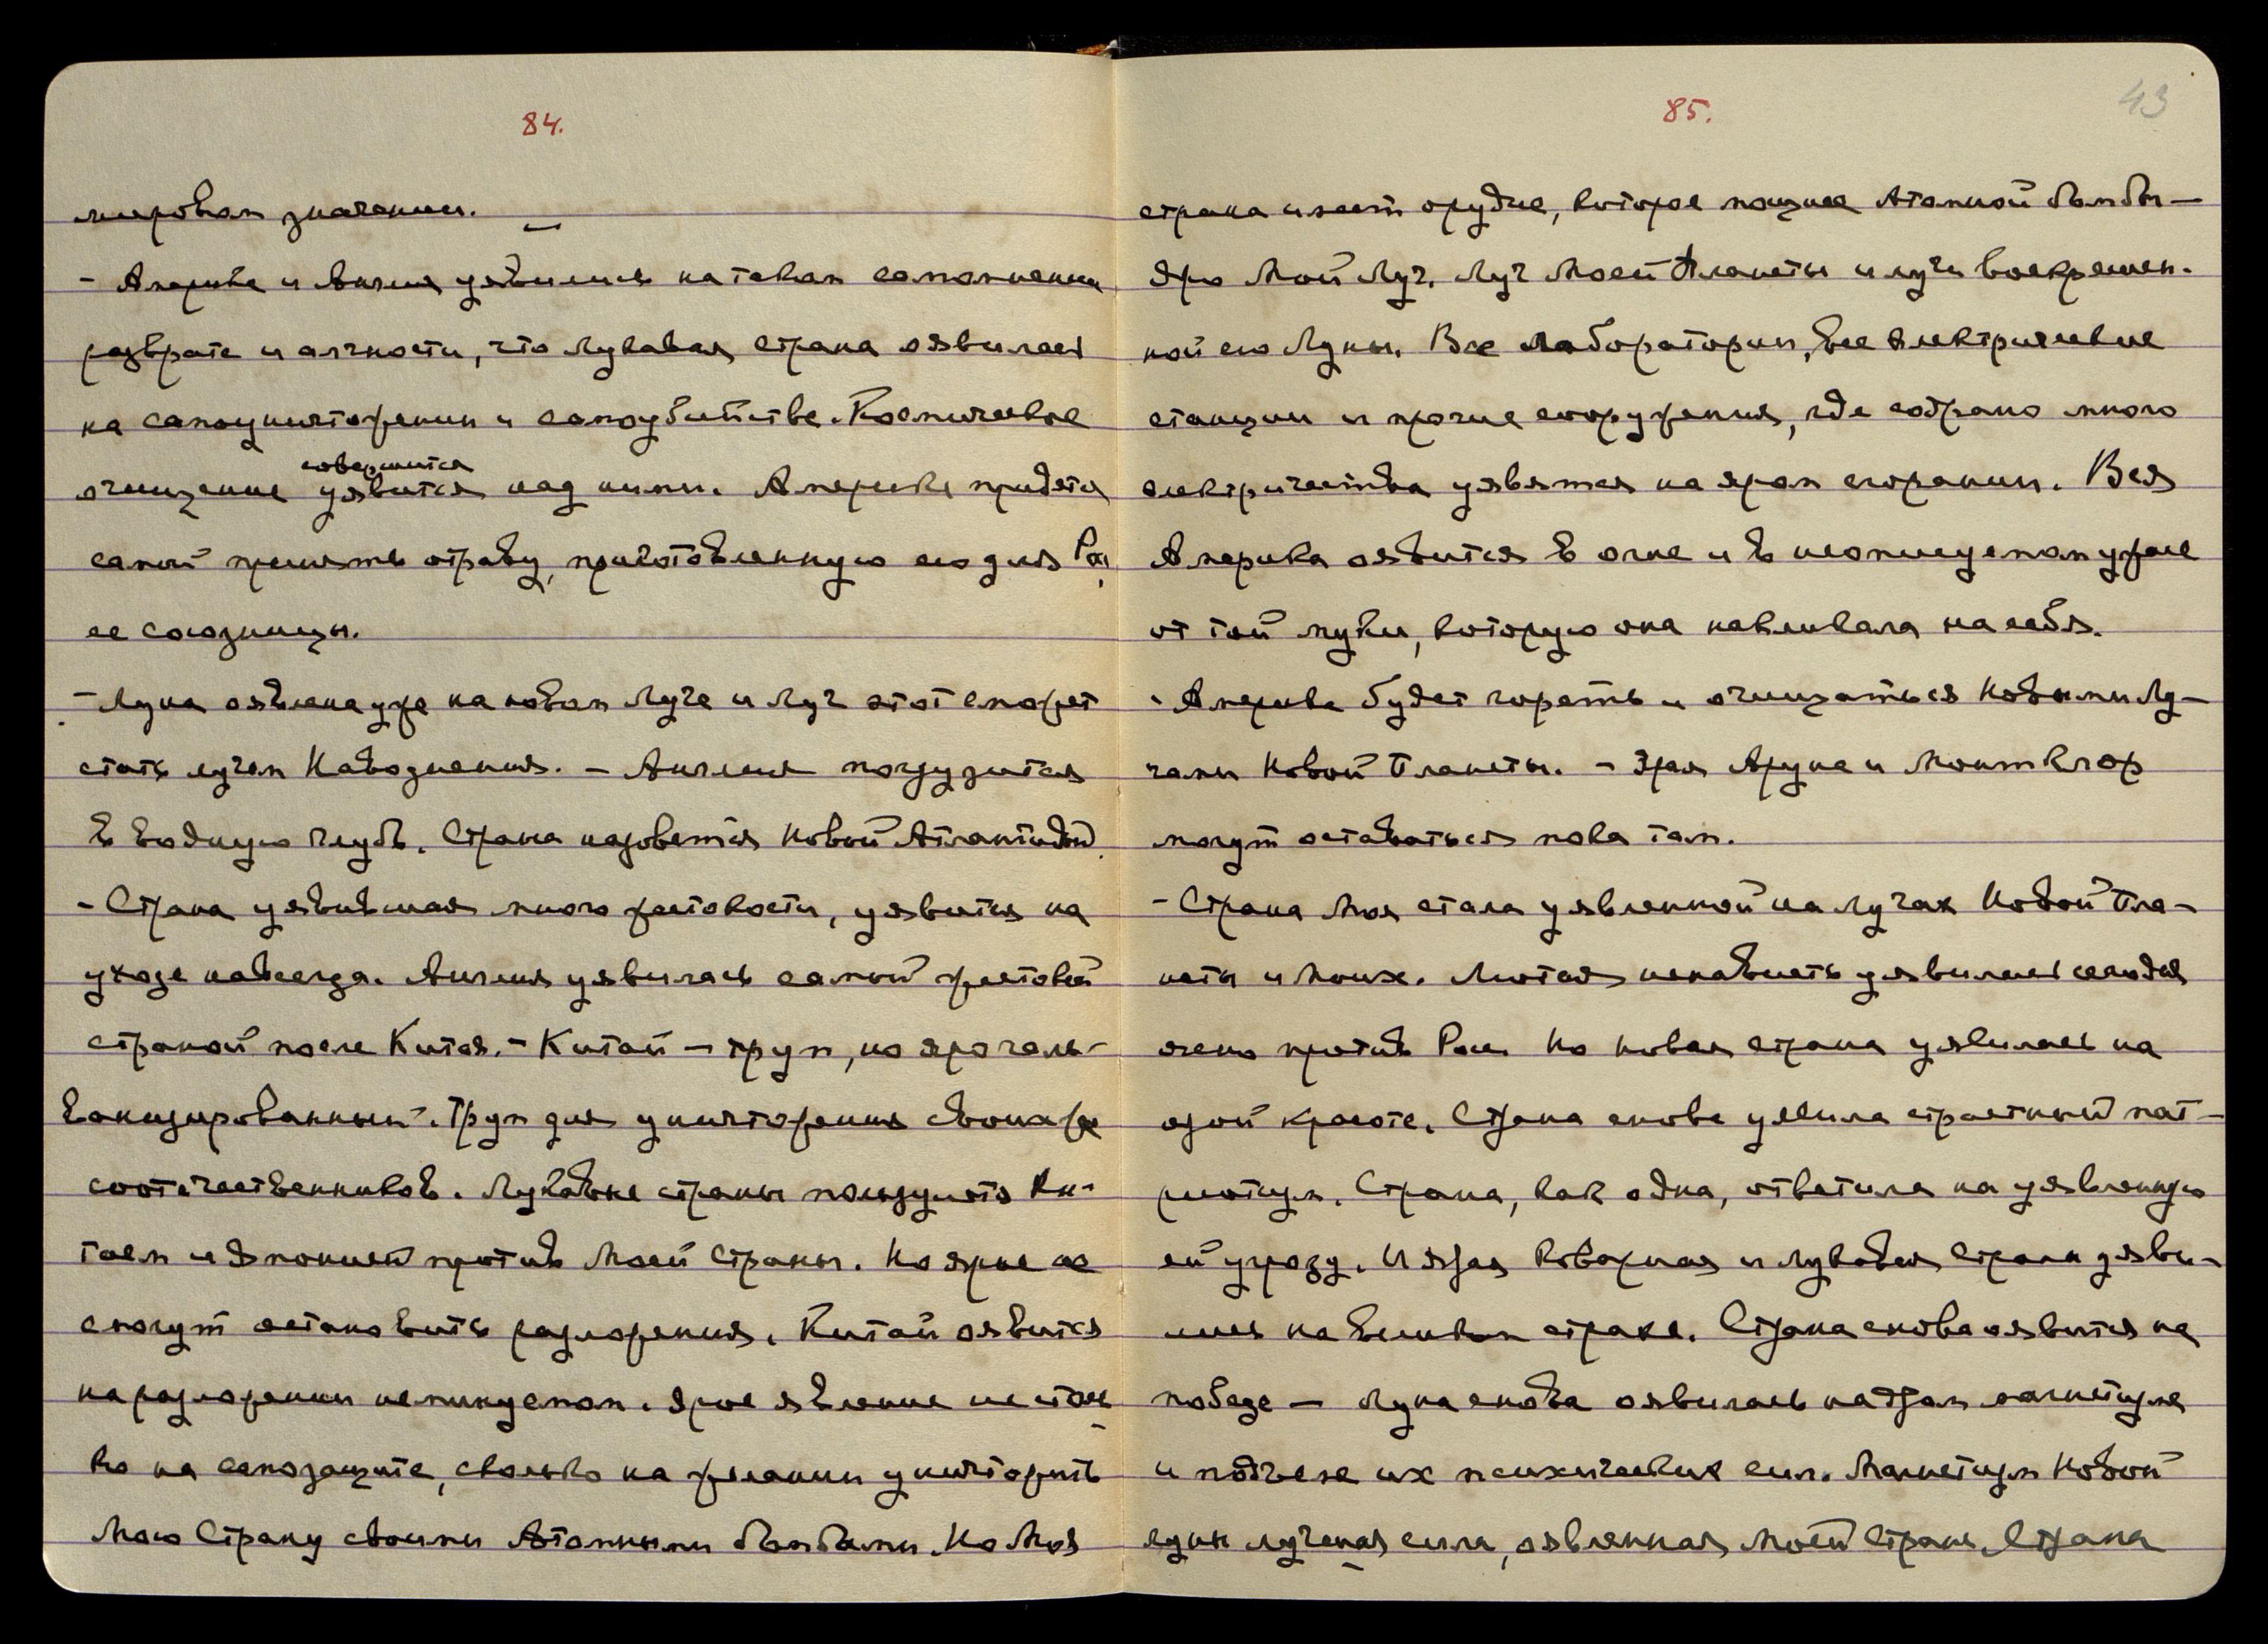 84.
мировом значении.
- Америка и Англия уявились на таком самомнении
разврате и алчности, что Лукавая страна оявилась
на самоуничтожении и самоубийстве. Космическое
совершится
очищение уявится над ними. Америке придется
самой принять отраву, приготовленную ею для
ее союзницы.
- Луна оявлена уже на новом Луче и Луч этот сможет
стать лучем Наводнения. - Англия погрузится
в водную глубь. Страна назовется Новой Атлантидой.
- Страна уявившая много жестокости, уявится на
уходе навсегда. Англия уявилась самой жестокой
страной после Китая. - Китай - труп, но яро галь-
ванизированный. Труп для уничтожения своих же
соотечественников. Лукавые страны пользуются Ки-
таем и Японией против Моей Страны. Но ярые не
смогут остановить разложения. Китай оявится
на разложении неминуемом. Ярое явление не столь
ко на самозащите, сколько на желании уничтожить
Мою Страну своими Атомными бомбами. Но Моя
85.
43
страна имеет орудие, которое мощнее Атомной бомбы —
яро Мой Луч. Луч Моей Планеты и лучи воскрешен-
ной ею Луны. Все лаборатории, все электрические
станции и прочие сооружения, где собрано много
электричества уявятся на яром сгорании. Вся
Америка оявится в огне и в неописуемом ужасе
от той муки, которую она накликала на себя.
- Америка будет гореть и очищаться Новыми Лу-
чами Новой Планеты. - Ярая Аруна и Монтклор
могут оставаться пока там.
- Страна Моя стала уявленной на лучах Новой Пла-
неты и Моих. Лютая ненависть уявилась сегодня
ясно против Рос. Но новая страна уявилась на
одной красоте. Страна снова уявила страстный пат-
риотизм. Страна, как одна, ответила на уявленную
ей угрозу. И ярая коварная и лукавая Страна уяви-
лась на великом страхе. Страна снова оявится на
победе — Луна снова оявилась на яром магнетизме
и подъеме их психических сил. Магнетизм Новой
луны лученая сила, оявленная Моей Стране. Страна